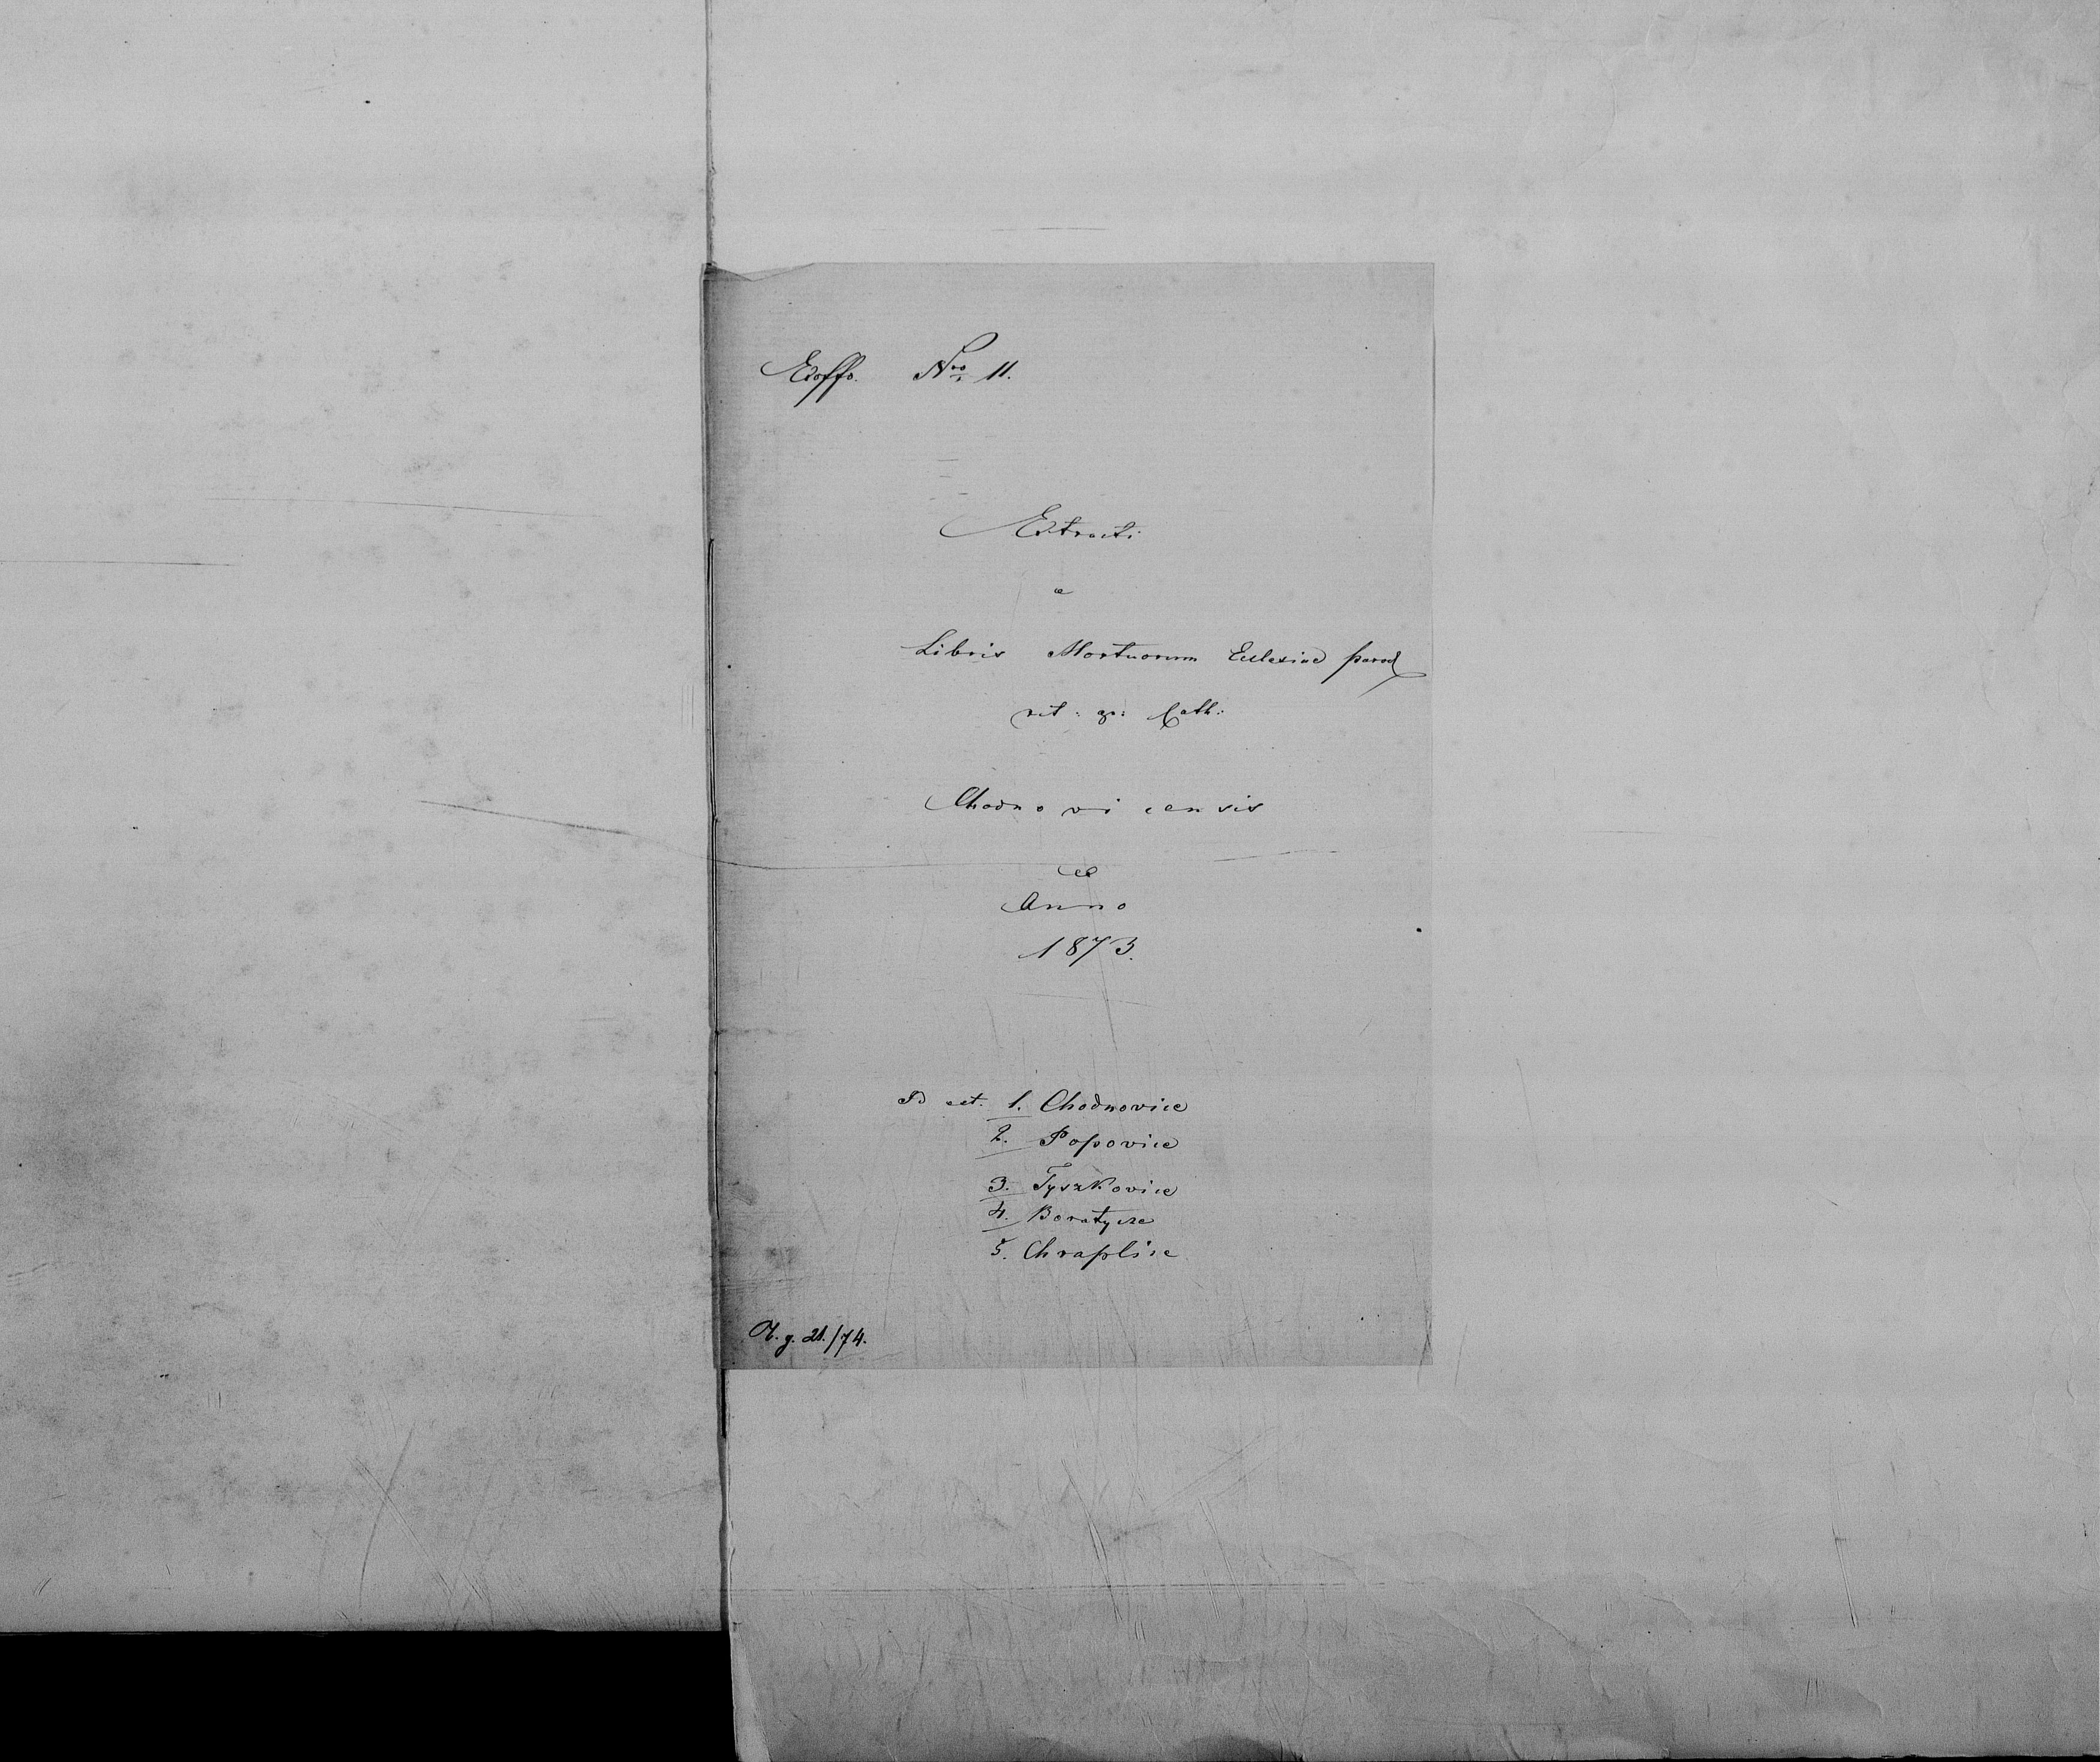 Exoffo. Nro 11.
Extracti
e
Libris Mortuorum Eclesiae paroch
rit: gr: Cath:
Chodnovicensis
ex
Anno
1873.
Id est. 1. Chodnovice
2. Popovice
3. Tyszkovice
4. Boratycze
5. Chraplice
21./74.